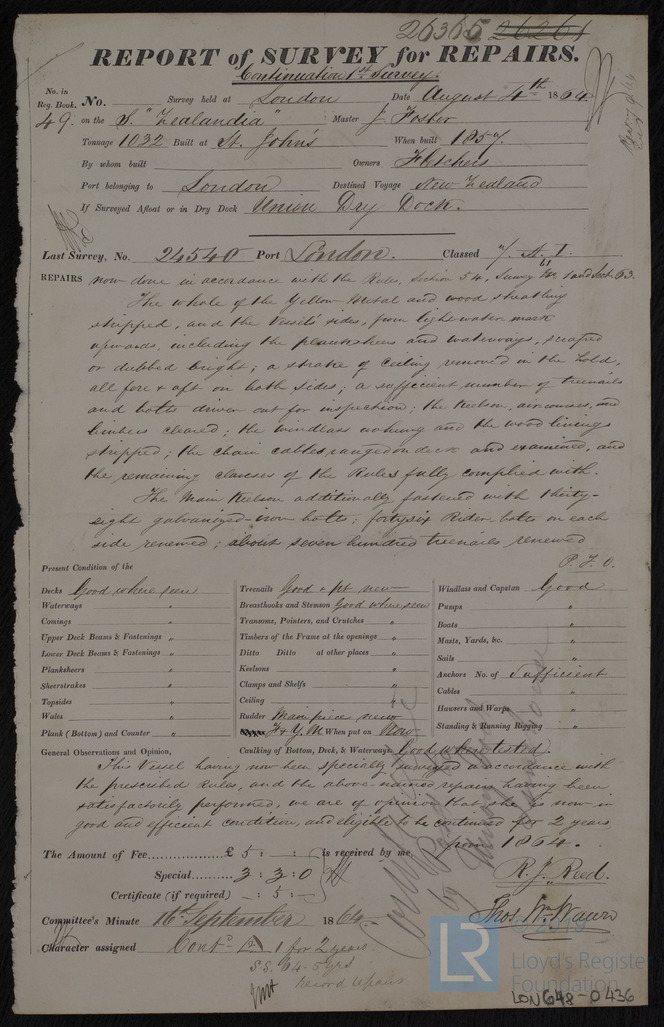 26365 26261
REPORT of SURVEY for REPAIRS.
Continuation 1st Survey.
No. in Reg. Book. No. Survey held at London Date August 4th 1864
49. on the S. "Zealandia" Master J. Foster
Tonnage 1032 Built at St. John's When built 1857.
By whom built Owners Fletchers
Port belonging to London Destined Voyage New Zealand
If Surveyed Afloat or in Dry Dock Union Dry Dock.
Last Survey, No. 24540 Port London. Classed 7. A. 1.
REPAIRS now done in accordance with the Rules, Section 54, Survey No 1 and Sect. 63.
The whole of the Yellow Metal and wood sheathing
stripped, and the Vessel's sides, from light water mark
upwards, including the planksheers and waterways, scraped
or dubbed bright; a strake of ceiling removed in the hold,
all fore & aft on both sides; a sufficient number of treenails
and bolts driven out for inspection; the Keelson, aircourses, and
limbers cleared; the windlass unhung and the wood linings
stripped; the chain cables ranged on deck and examined, and
the remaining clauses of the Rules fully complied with.
The Main Keelson additionally fastened with thirty-
eight galvanized-iron bolts; forty six Rider bolts on each
side renewed; about seven hundred treenails renewed
P.T.O.
Present Condition of the
Decks Good where seen
Waterways "
Comings "
Upper Deck Beams & Fastenings "
Lower Deck Beams & Fastenings "
Planksheers "
Sheerstrakes "
Topsides "
Wales "
Plank (Bottom) and Counter "
Treenails Good & pt new
Breasthooks and Stemson Good where seen
Transoms, Pointers, and Crutches "
Timbers of the Frame at the openings "
Ditto Ditto at other places "
Keelsons "
Clamps and Shelfs "
Ceiling "
Rudder Main piece new
F & Y.M. When put on Now
Caulking of Bottom, Deck, & Waterways Good where tested.
Windlass and Capstan Good
Pumps "
Boats "
Masts, Yards, &c. "
Sails "
Anchors No. of Sufficient
Cables "
Hawsers and Warps "
Standing & Running Rigging "
General Observations and Opinion,
This Vessel having now been specially surveyed in accordance with
the prescribed Rules, and the above-named repairs having been
satisfactorily performed, we are of opinion that she is now in
good and efficient condition, and eligible to be continued for 2 years
from 1864.
The Amount of Fee £ 5 : - : - is received by me,
Special 3 : 3 : 0
Certificate (if required) - : 5 : -
R. J. Reed.
Thos. Wm Wawn
Committee's Minute 16th September 1864
Character assigned Contd A 1 for 2 years
S.S. 64-5 yrs
record repairs
© 2019
LR Lloyd's Register Foundation
LON648-0436